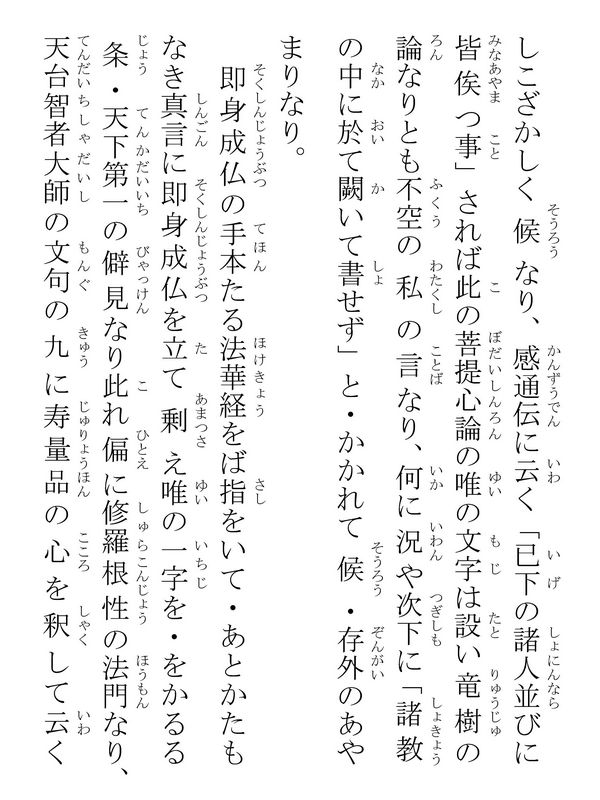 しこざかしく候なり、感通伝に云く「已下の諸人並びに
皆俟つ事」されば此の菩提心論の唯の文字は設い竜樹の
論なりとも不空の私の言なり、何に況や次下に「諸教
の中に於て闕いて書せず」と・かかれて候・存外のあや
まりなり。
即身成仏の手本たる法華経をば指をいて・あとかたも
なき真言に即身成仏を立て剰え唯の一字を・をかるる
条・天下第一の僻見なり此れ偏に修羅根性の法門なり、
天台智者大師の文句の九に寿量品の心を釈して云く